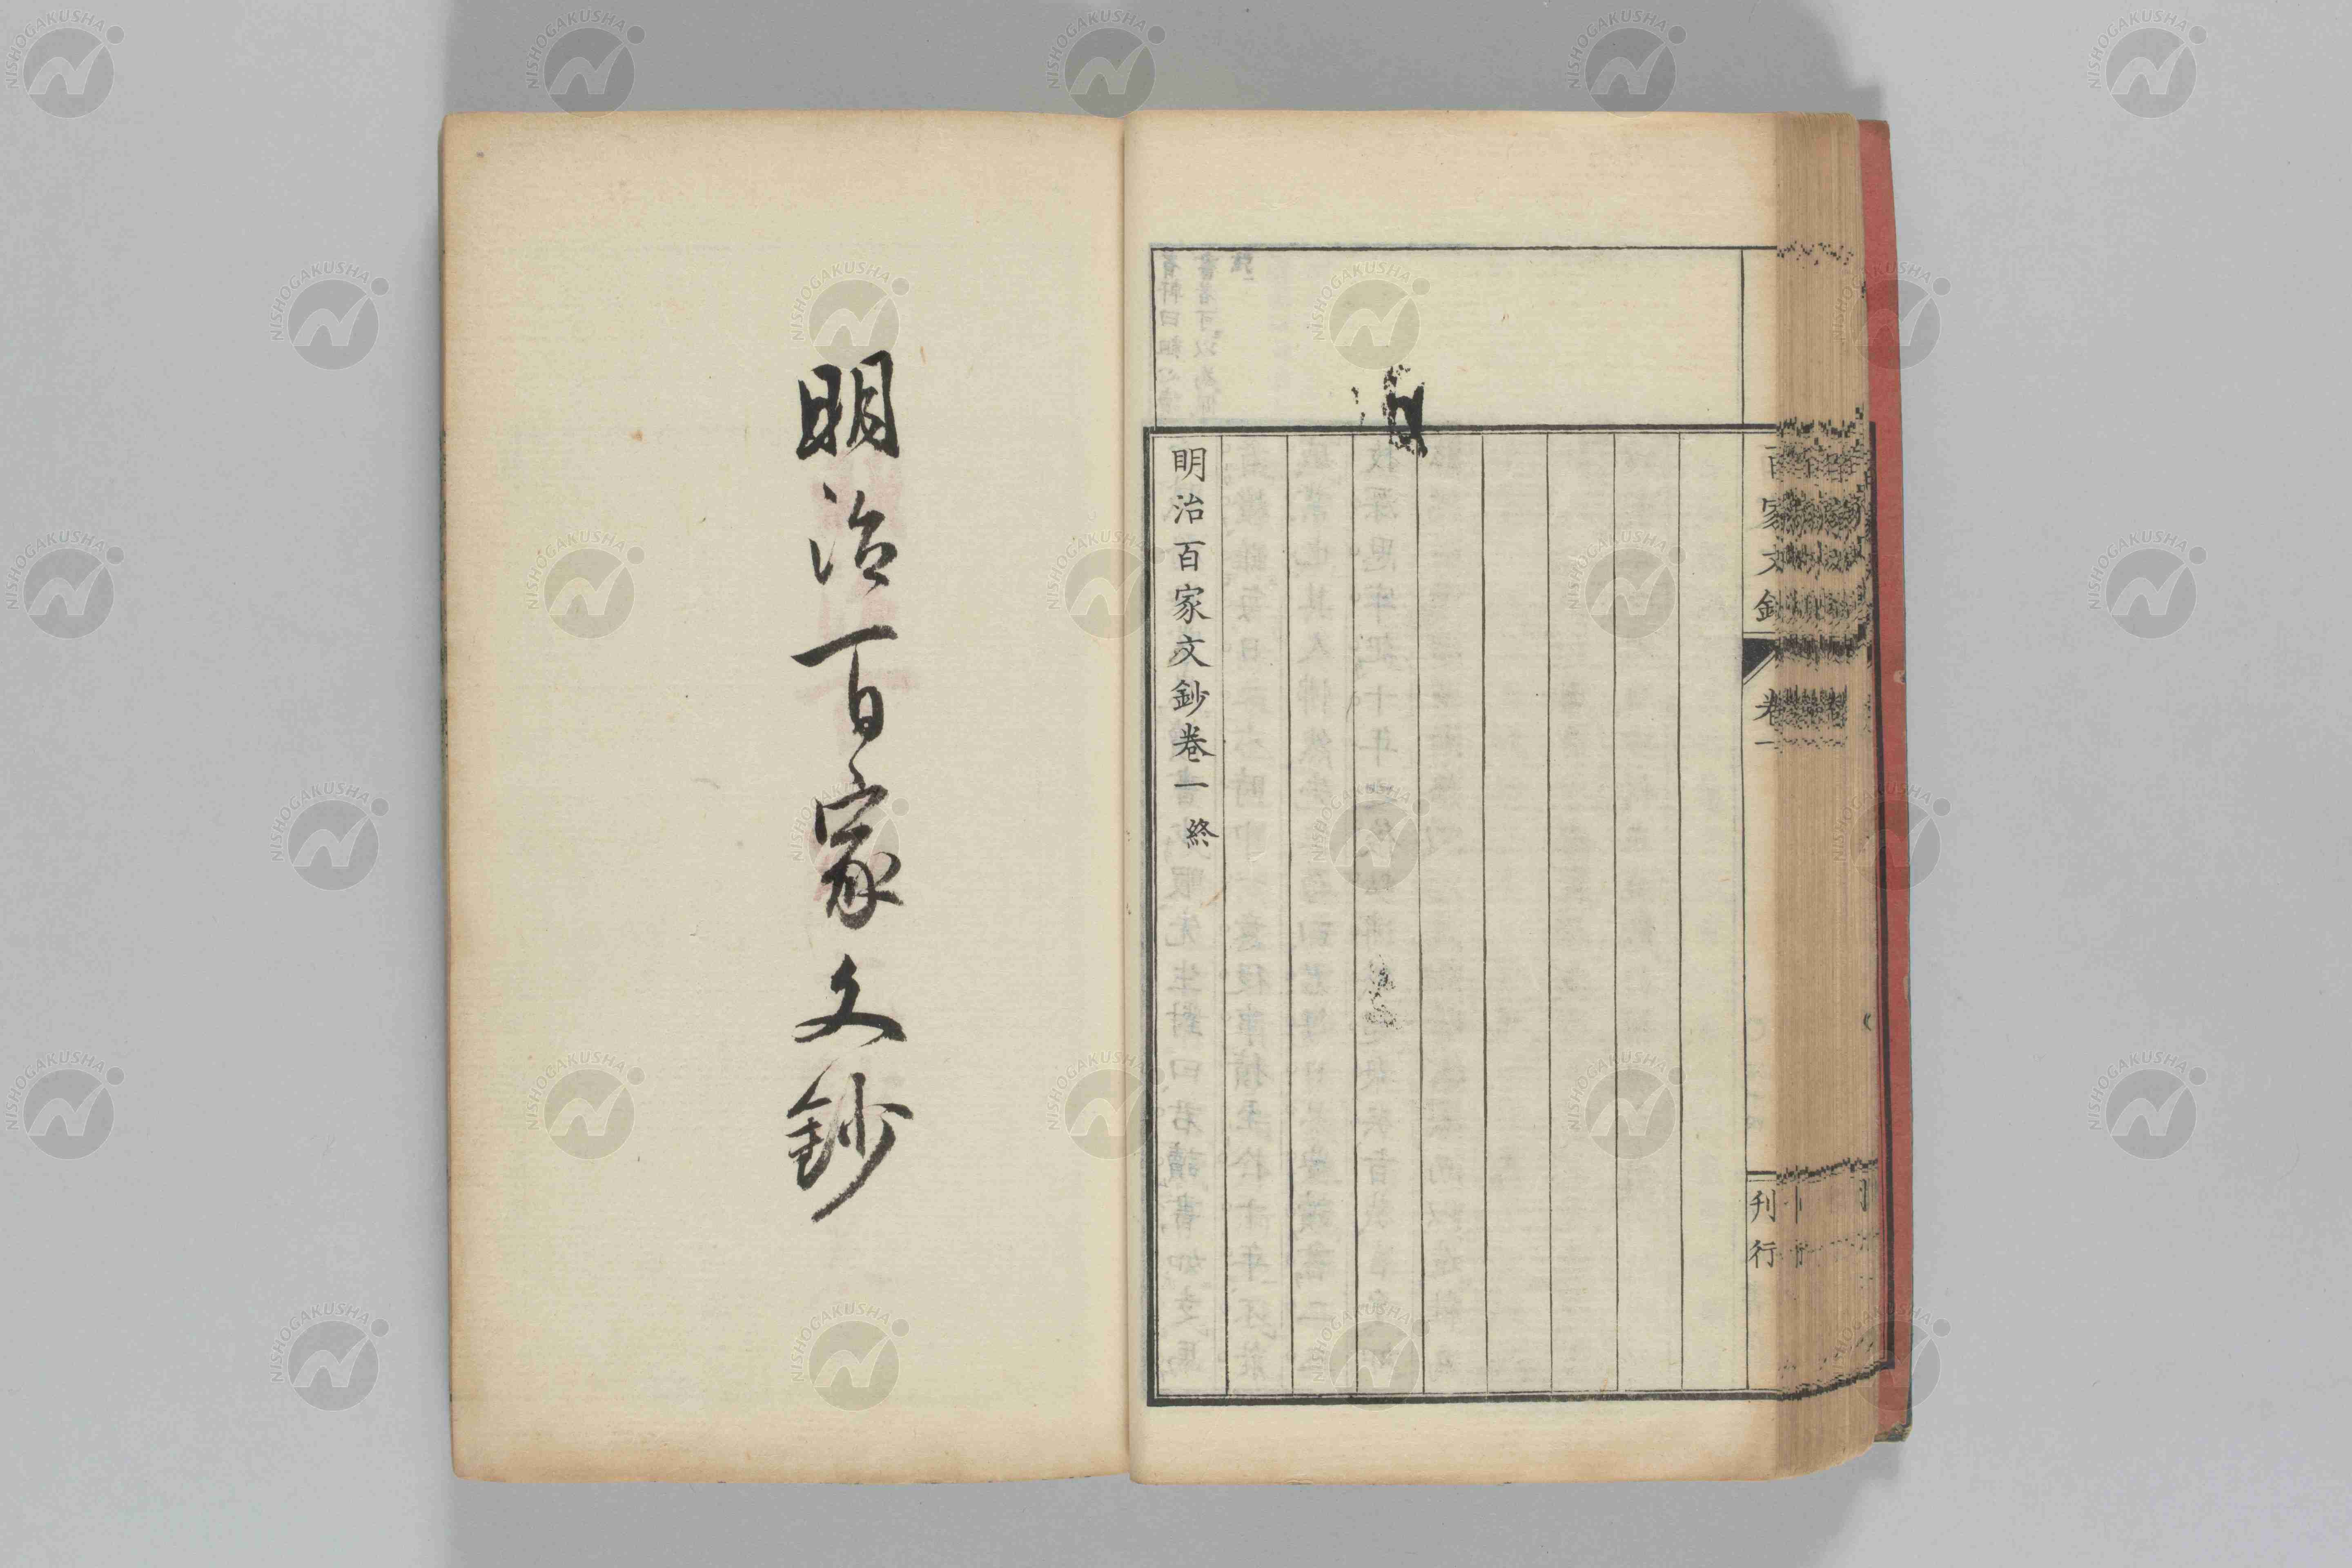 百家文鈔
卷一
刋行
明治百家文鈔卷一終
明治百家文鈔
NISHOGAKUSHA